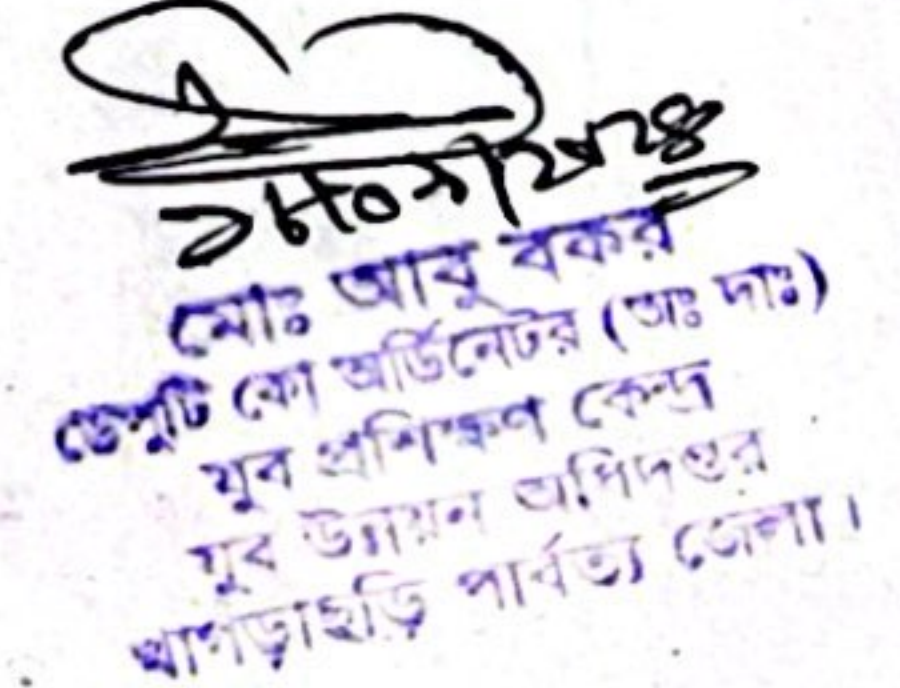 মোঃ আবু বকর
ডেপুটি কো অর্ডিনেটর (অঃ দাঃ)
যুব প্রশিক্ষণ কেন্দ্র
যুব উন্নয়ন অধিদপ্তর
খাগড়াছড়ি পার্বত্য জেলা।